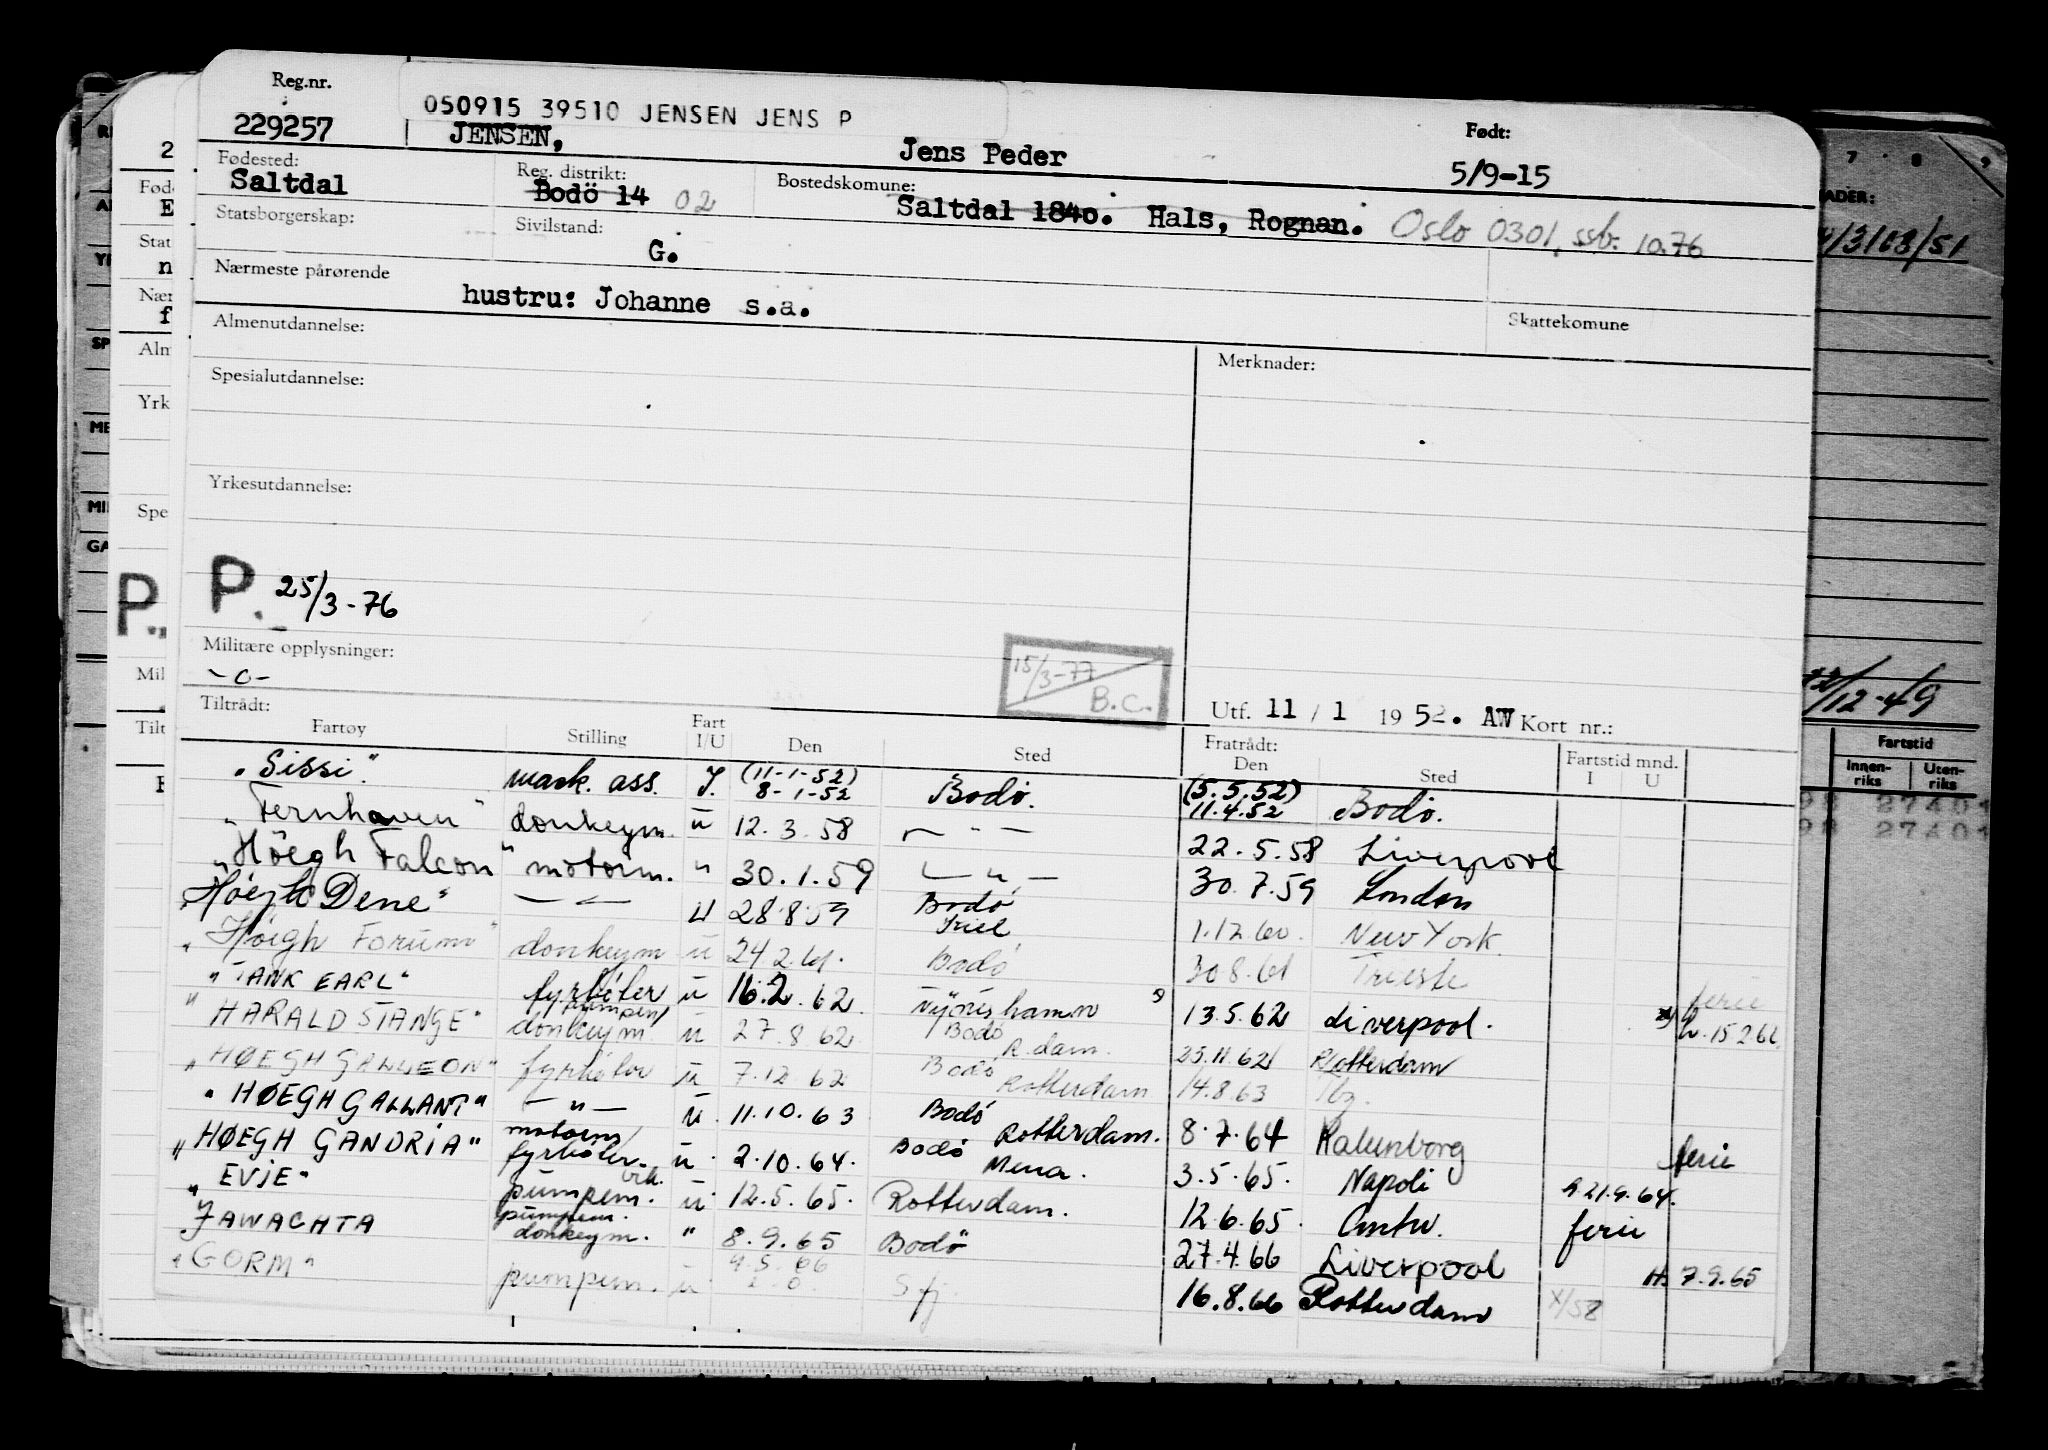 Reg.nr.
050915 39510 JENSEN JENS P
229257 JENSEN, Jens Peder Født: 5/9-15
Fødested: Saltdal Reg. distrikt: Bodö 14 02 Bostedskomune: Saltdal 1840. Hals, Rognan. Oslo 0301, ssb. 10.76
Statsborgerskap: Sivilstand: G.
Nærmeste pårørende
hustru: Johanne s.a.
Skattekomune
Almenutdannelse:
Merknader:
Spesialutdannelse:
Yrkesutdannelse:
P. 25/3-76
Militære opplysninger:
-o-
15/3-77 B.C.
Utf. 11/1 1952. AW Kort nr.:
Tiltrådt: Fratrådt:
Fartøy Stilling Fart I/U Den Sted Den Sted Fartstid mnd. I U
"Sissi". mask. ass. I. (11-1-52) 8-1-52 Bodö. (5.5.52) 11.4.52 Bodö.
"Fernhaven" donkeym. u 12.3.58 — " — 22.5.58 Liverpool
"Höegh Falcon" motorm. " 30.1.59 — " — 30.7.59 London
"Höegh Dene" — " — U 28.8.59 Bodö 1.12.60. New York
"Höegh Forum" donkeym u 24.2.61. Bodö 30.8.61 Trieste
"TANK EARL" fyrböter u 16.2.62 Nynäshamn 13.5.62 Liverpool. ferie h. 15.2.62
"HARALD STANGE" pumpem/ donkeym. u 27.8.62 Bodö R.dam. 23.11.62 Rotterdam
"HØEGH GALLEON" fyrböter u 7.12.62 Bodö Rotterdam 14.8.63
"HØEGH GALLANT" — " — u 11.10.63 Bodö Rotterdam. 8.7.64 Kalunborg
"HØEGH GANDRIA" motorm/ fyrböter. u 2.10.64. Bodö Mena. 3.5.65. Napoli ferie h 21.9.64.
"EVJE" vik. pumpem. u 12.5.65. Rotterdam. 12.6.65. Antw. ferie
"JAWACHTA pumpem. donkeym. " 8.9.65 Bodö 27.4.66 Liverpool H. 7.9.65
"GORM" pumpem. u 9.5.66 Sfj 16.8.66 Rotterdam X/58
4/3103/51
12-49
Fartstid
Innen-riks Uten-riks
27401
27401